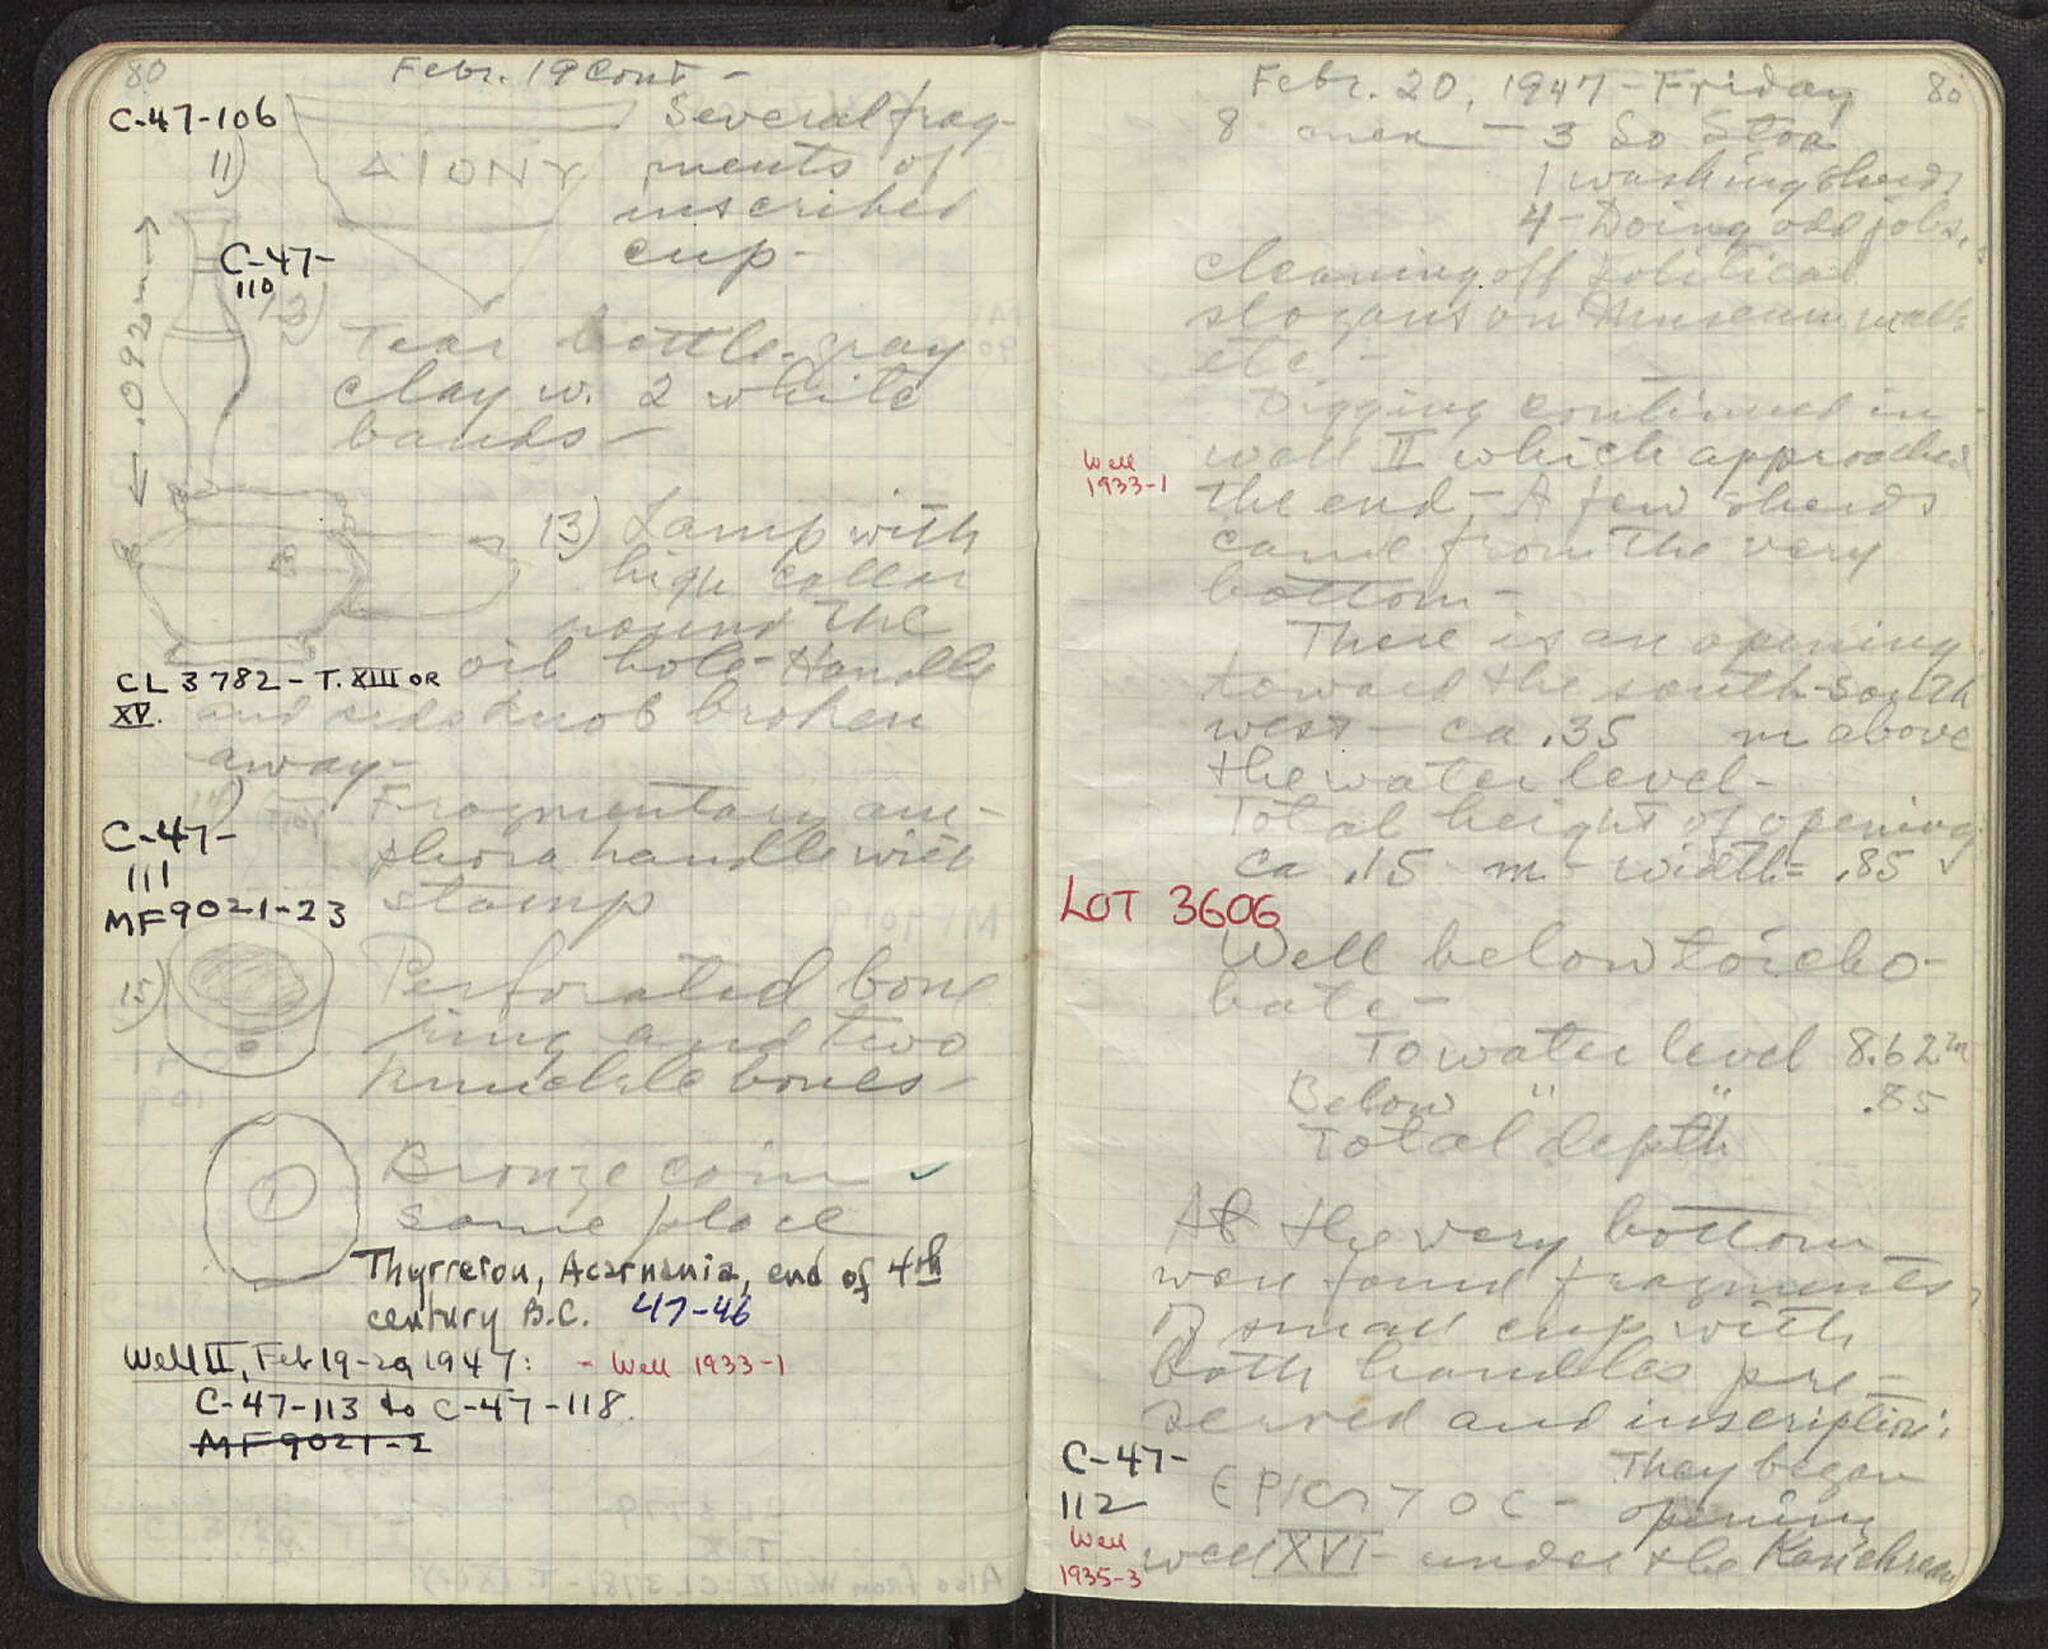 80
Febr. 19 Cont -
C-47-106
11)
ΔΙΟΝΥ
Several frag-
ments of
inscribed
cup-
← .092m →
C-47-
110
12)
Tear bottle-gray
clay w. 2 white
bands-
13) Lamp with
high collar
round the
oil hole-Handle
CL 3782 - T. XIII OR
XV.
and side knob broken
away-
14)
Fragmentary am-
phora handle with
stamp
C-47-
111
MF 9021-23
15)
Perforated bone
ring and two
knuckle bones-
Bronze coin ✓
same place
Thyrreion, Acarnania, end of 4th
century B.C. 47-46
Well II, Feb 19-20 1947: - Well 1933-1
C-47-113 to C-47-118.
MF 9021-2
Febr. 20, 1947 - Friday
80
8 men - 3 So Stoa
1 washing sherds
4 - Doing odd jobs,
cleaning off political
slogans on Museum walls
etc -
Digging continued in
Well
1933-1
well II which approached
the end - A few sherds
came from the very
bottom -
There is an opening
toward the south-south
west - ca .35 m above
the water level -
Total height of opening
ca .15 m - width = .85
LOT 3606
Well below toicho-
bate -
To water level 8.62m
Below " " .85
Total depth
At the very bottom
were found fragments
small cup with
both handles pre-
served and inscription:
C-47-
112
They began
opening
Well
1935-3
well XVI - under the Kenchrean